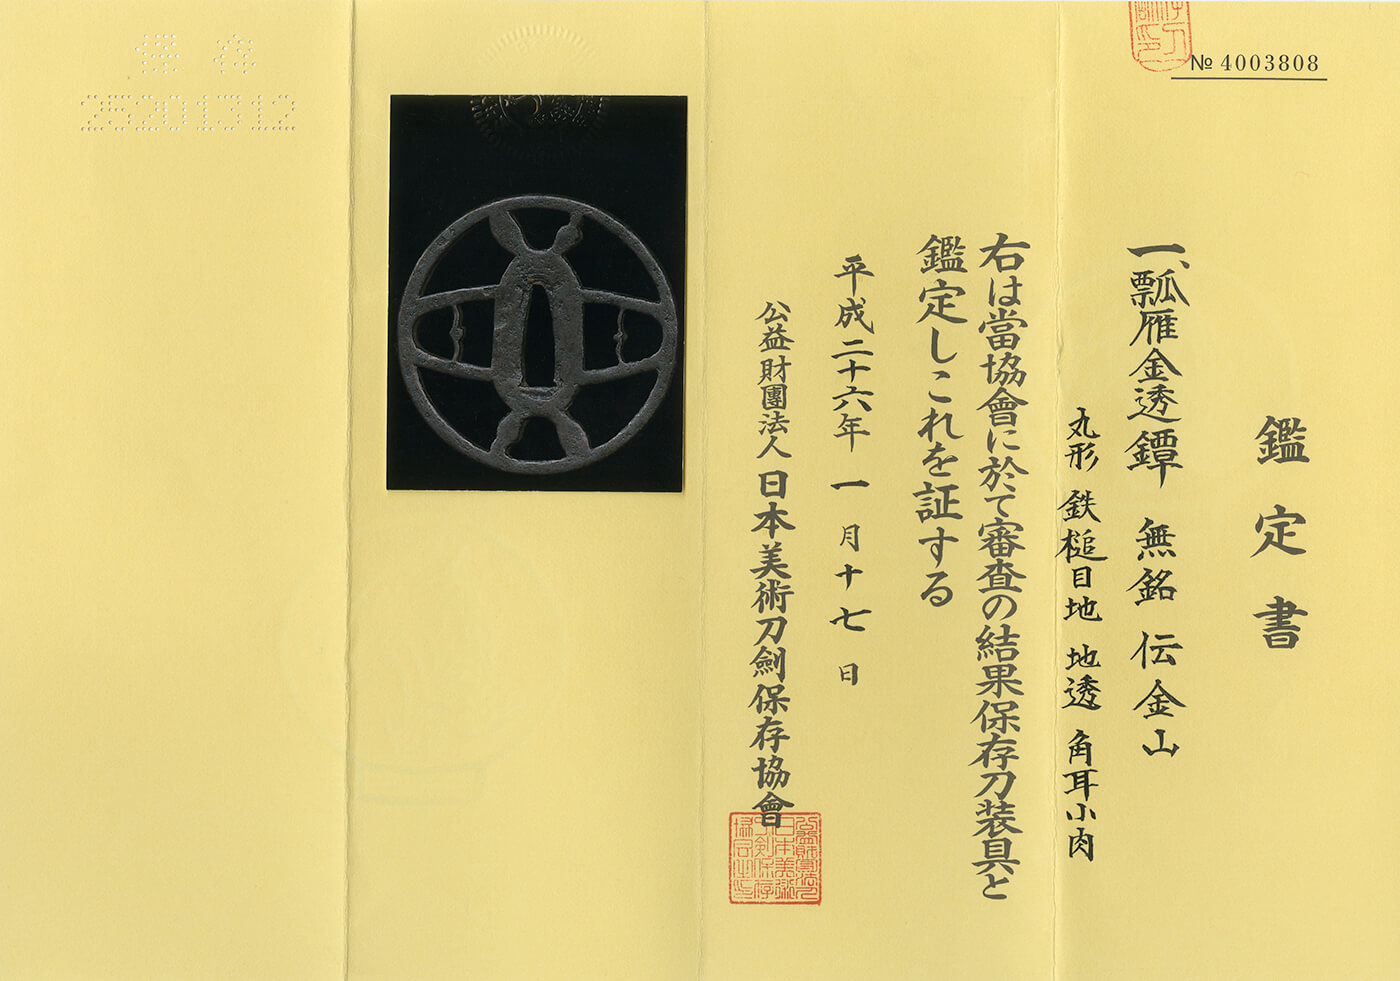 № 4003808
鑑定書
一、瓢雁金透鐔 無銘 伝金山
丸形 鉄槌目地 地透 角耳小肉
右は當協會に於て審査の結果保存刀装具と
鑑定しこれを証する
平成二十六年一月十七日
公益財團法人 日本美術刀劍保存協會
保存
25201312